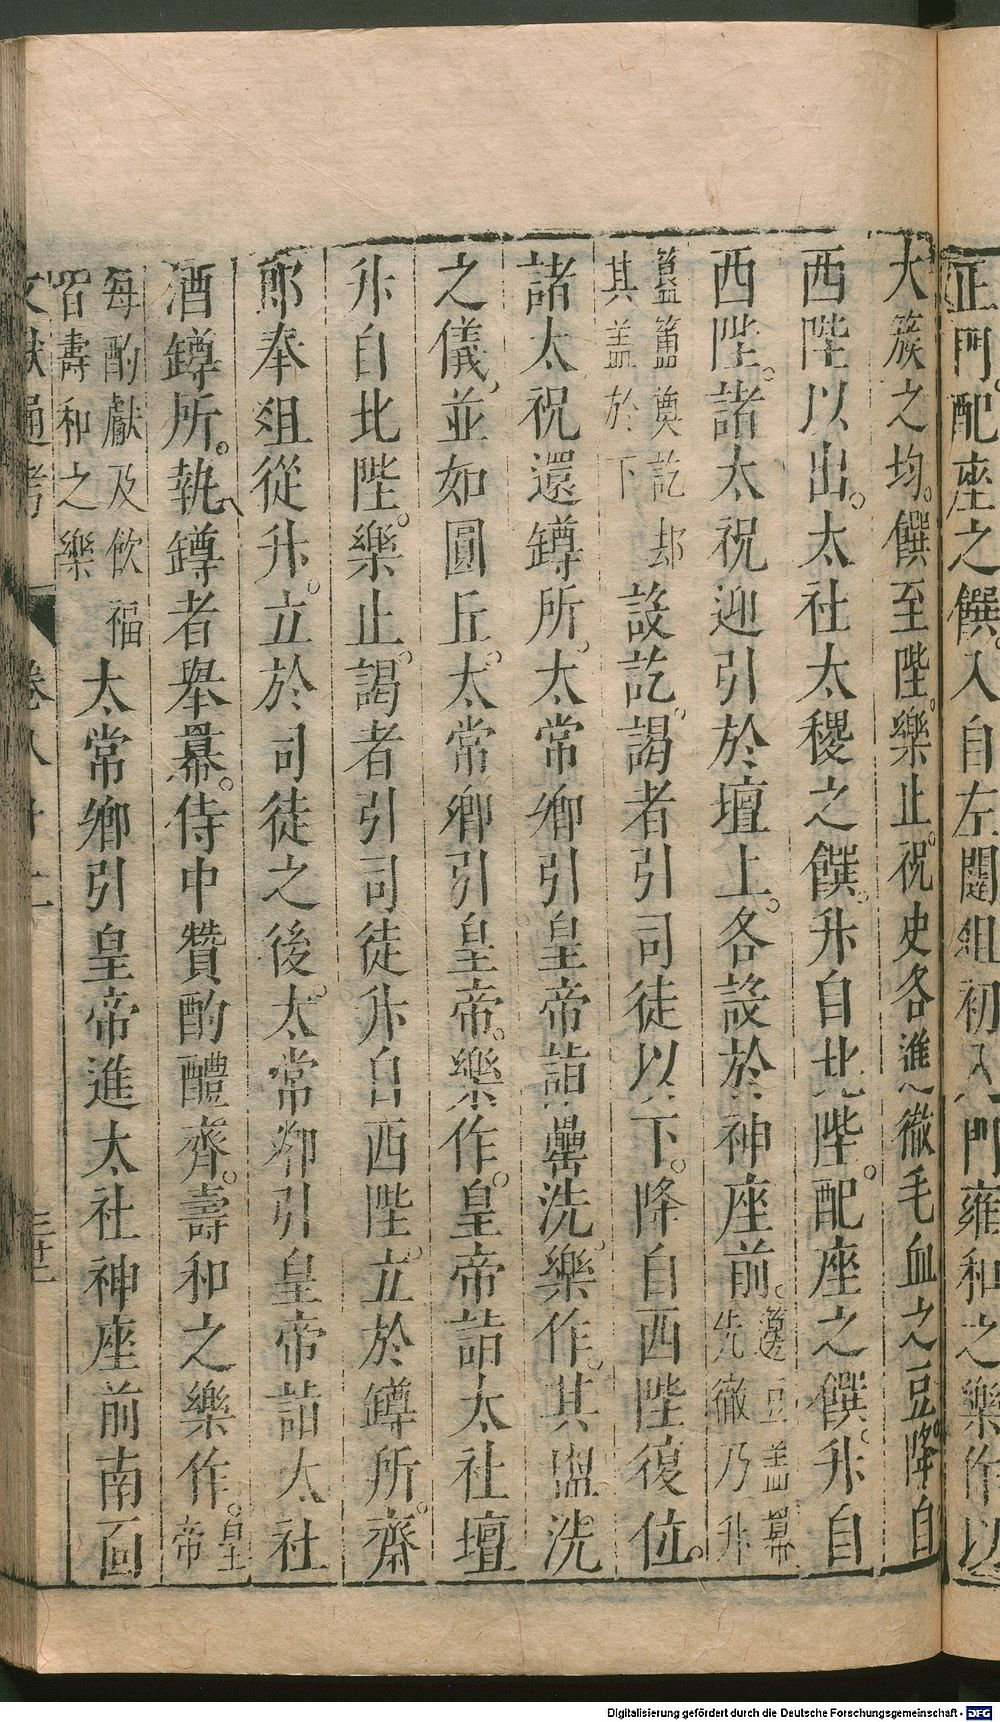 正門配座之饌入自左闥俎初入門雍和之樂作以
大簇之均饌至陛樂止祝史各進徹毛血之豆降自
西陛以出太社太稷之饌升自北陛配座之饌升自
西陛諸太祝迎引於壇上各設於神座前籩豆蓋冪先徹乃升
簠簋奠訖却其盖於下設訖謁者引司徒以下降自西陛復位
諸太祝還罇所太常卿引皇帝詣罍洗樂作其盥洗
之儀並如圓丘太常卿引皇帝樂作皇帝詣太社壇
升自北陛樂止謁者引司徒升自西陛立於罇所齋
郎奉俎從升立於司徒之後太常卿引皇帝詣太社
酒罇所執罇者舉冪侍中贊酌醴齊壽和之樂作皇帝
每酌獻及飲福皆壽和之樂太常卿引皇帝進太社神座前南面
文獻通考 卷八十二
Digitalisierung gefördert durch die Deutsche Forschungsgemeinschaft - DFG